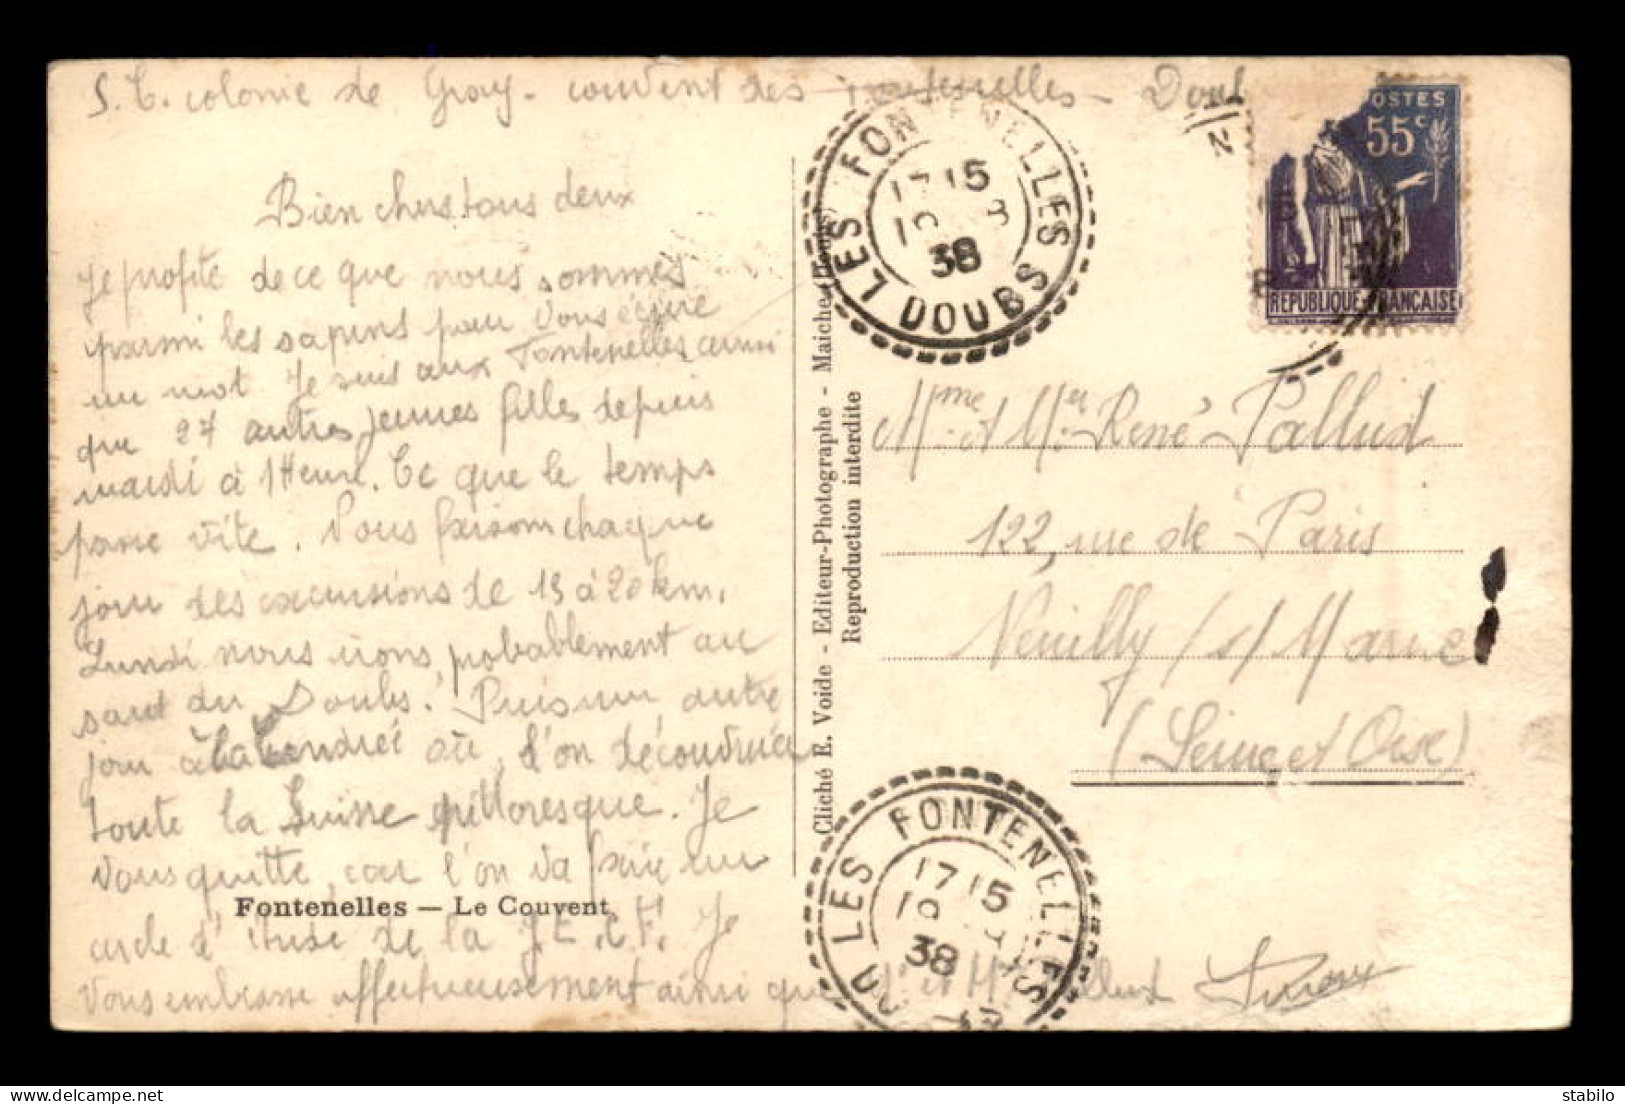 S. C. colonie de Gray - couvent des Fontenelles - Doubs
Bien chers tous deux
Je profite de ce que nous sommes
parmi les sapins pour vous écrire
un mot Je suis aux Fontenelles ainsi
que 27 autres jeunes filles depuis
mardi à 1 Heure. Ce que le temps
passe vite. Nous faisons chaque
jour des excursions de 15 à 20 km.
Lundi nous irons, probablement au
saut du Doubs. Puis un autre
jour à la où l'on découvrira
toute la Suisse pittoresque. Je
vous quitte, car l'on va faire un
Fontenelles — Le Couvent
cercle d'étude de la J.E.C.F. Je
vous embrasse affectueusement ainsi que
Cliché E. Voide - Editeur-Photographe - Maiche (Doubs)
Reproduction interdite
LES FONTENELLES
17 15
38
DOUBS
OSTES
55c
REPUBLIQUE FRANCAISE
Mme et Mr René Pallud
122, rue de Paris
Neuilly / s / Marne
(Seine et Oise)
LES FONTENELLES
17 15
38
delcampe.net
stabilo